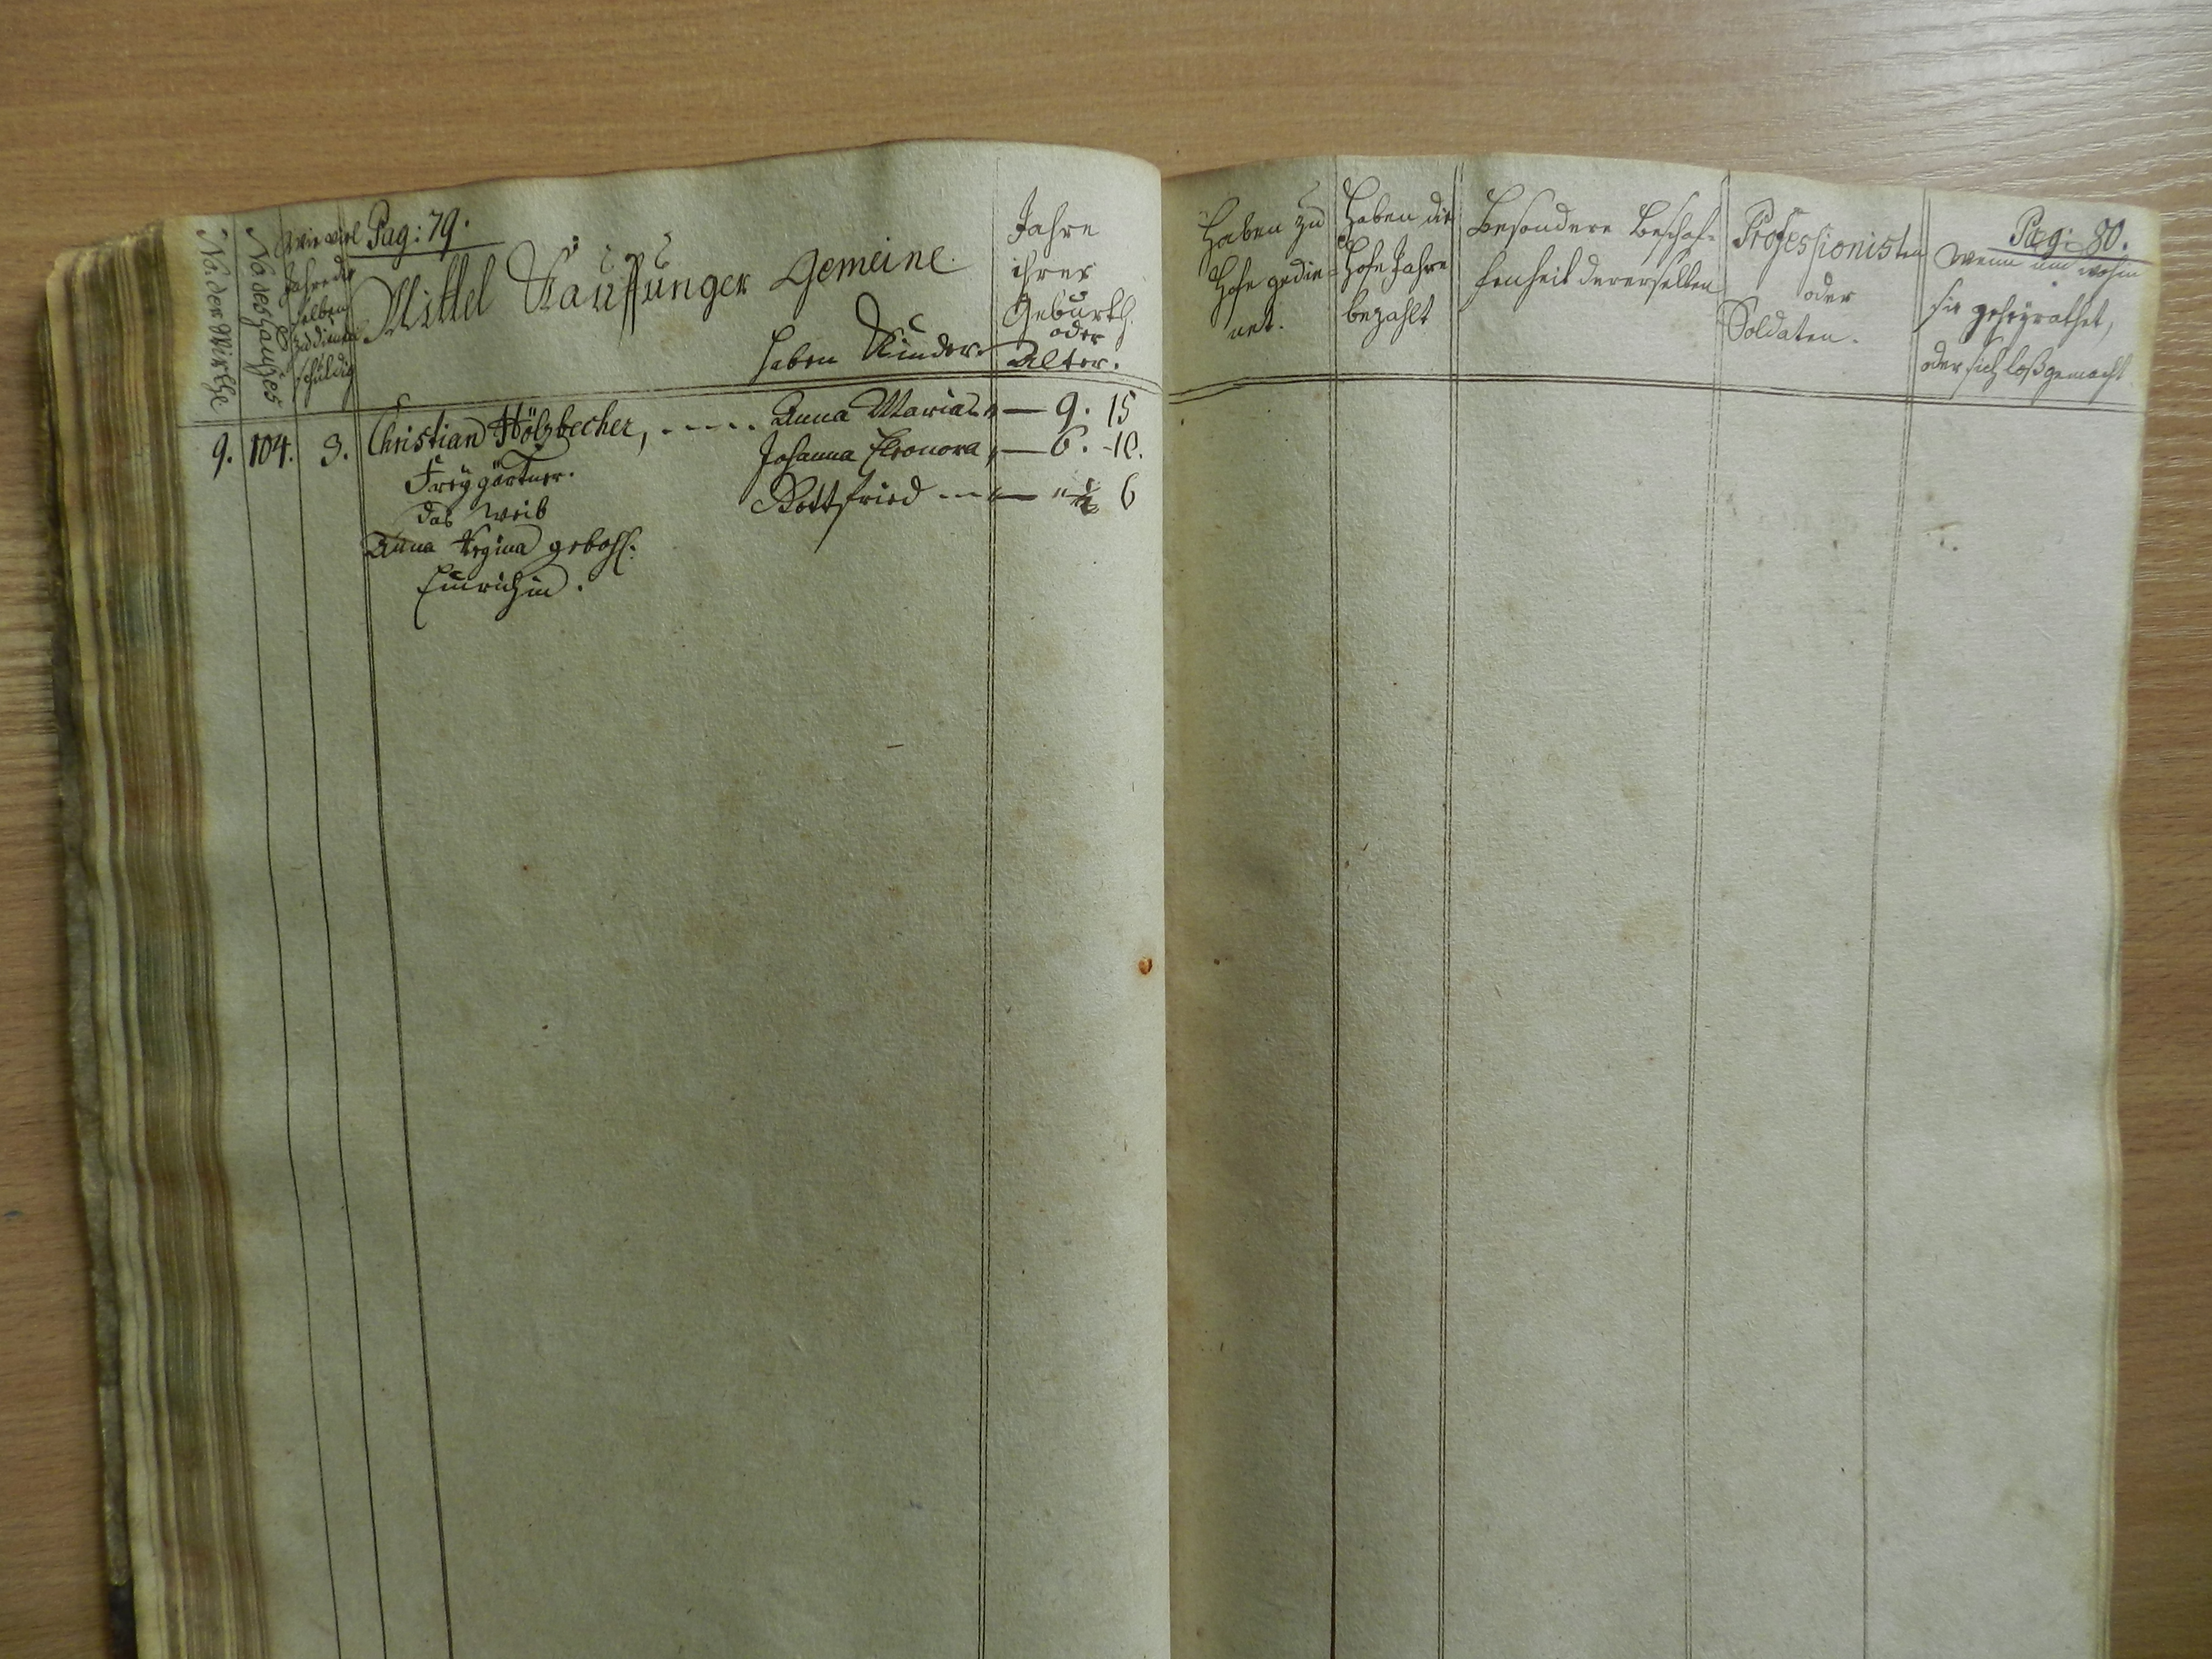 No. der Wirthe
No. des Hauses
Wie viel
Jahre die
selben
zu dienen
schuldig
Pag: 79.
Mittel Kauffunger Gemeine.
haben Kinder.
Jahre
ihrer
Geburth.
oder
Alter.
9. 104. 3. Christian Hölzbecher, ..... Anna Maria — 9. 15
Johanna Eleonora, — 6. 10.
Freygärtner.
Gottfried --- — 6
das Weib
Anna Regina gebohr:
Pag: 80.
Haben zu
Hofe gedie=
net.
Haben die
Hofe Jahre
bezahlt
Besondere Beschaf=
fenheit dererselben
Professionisten
oder
Soldaten.
Wenn und wohin
sie geheyrathet,
oder sich loßgemacht